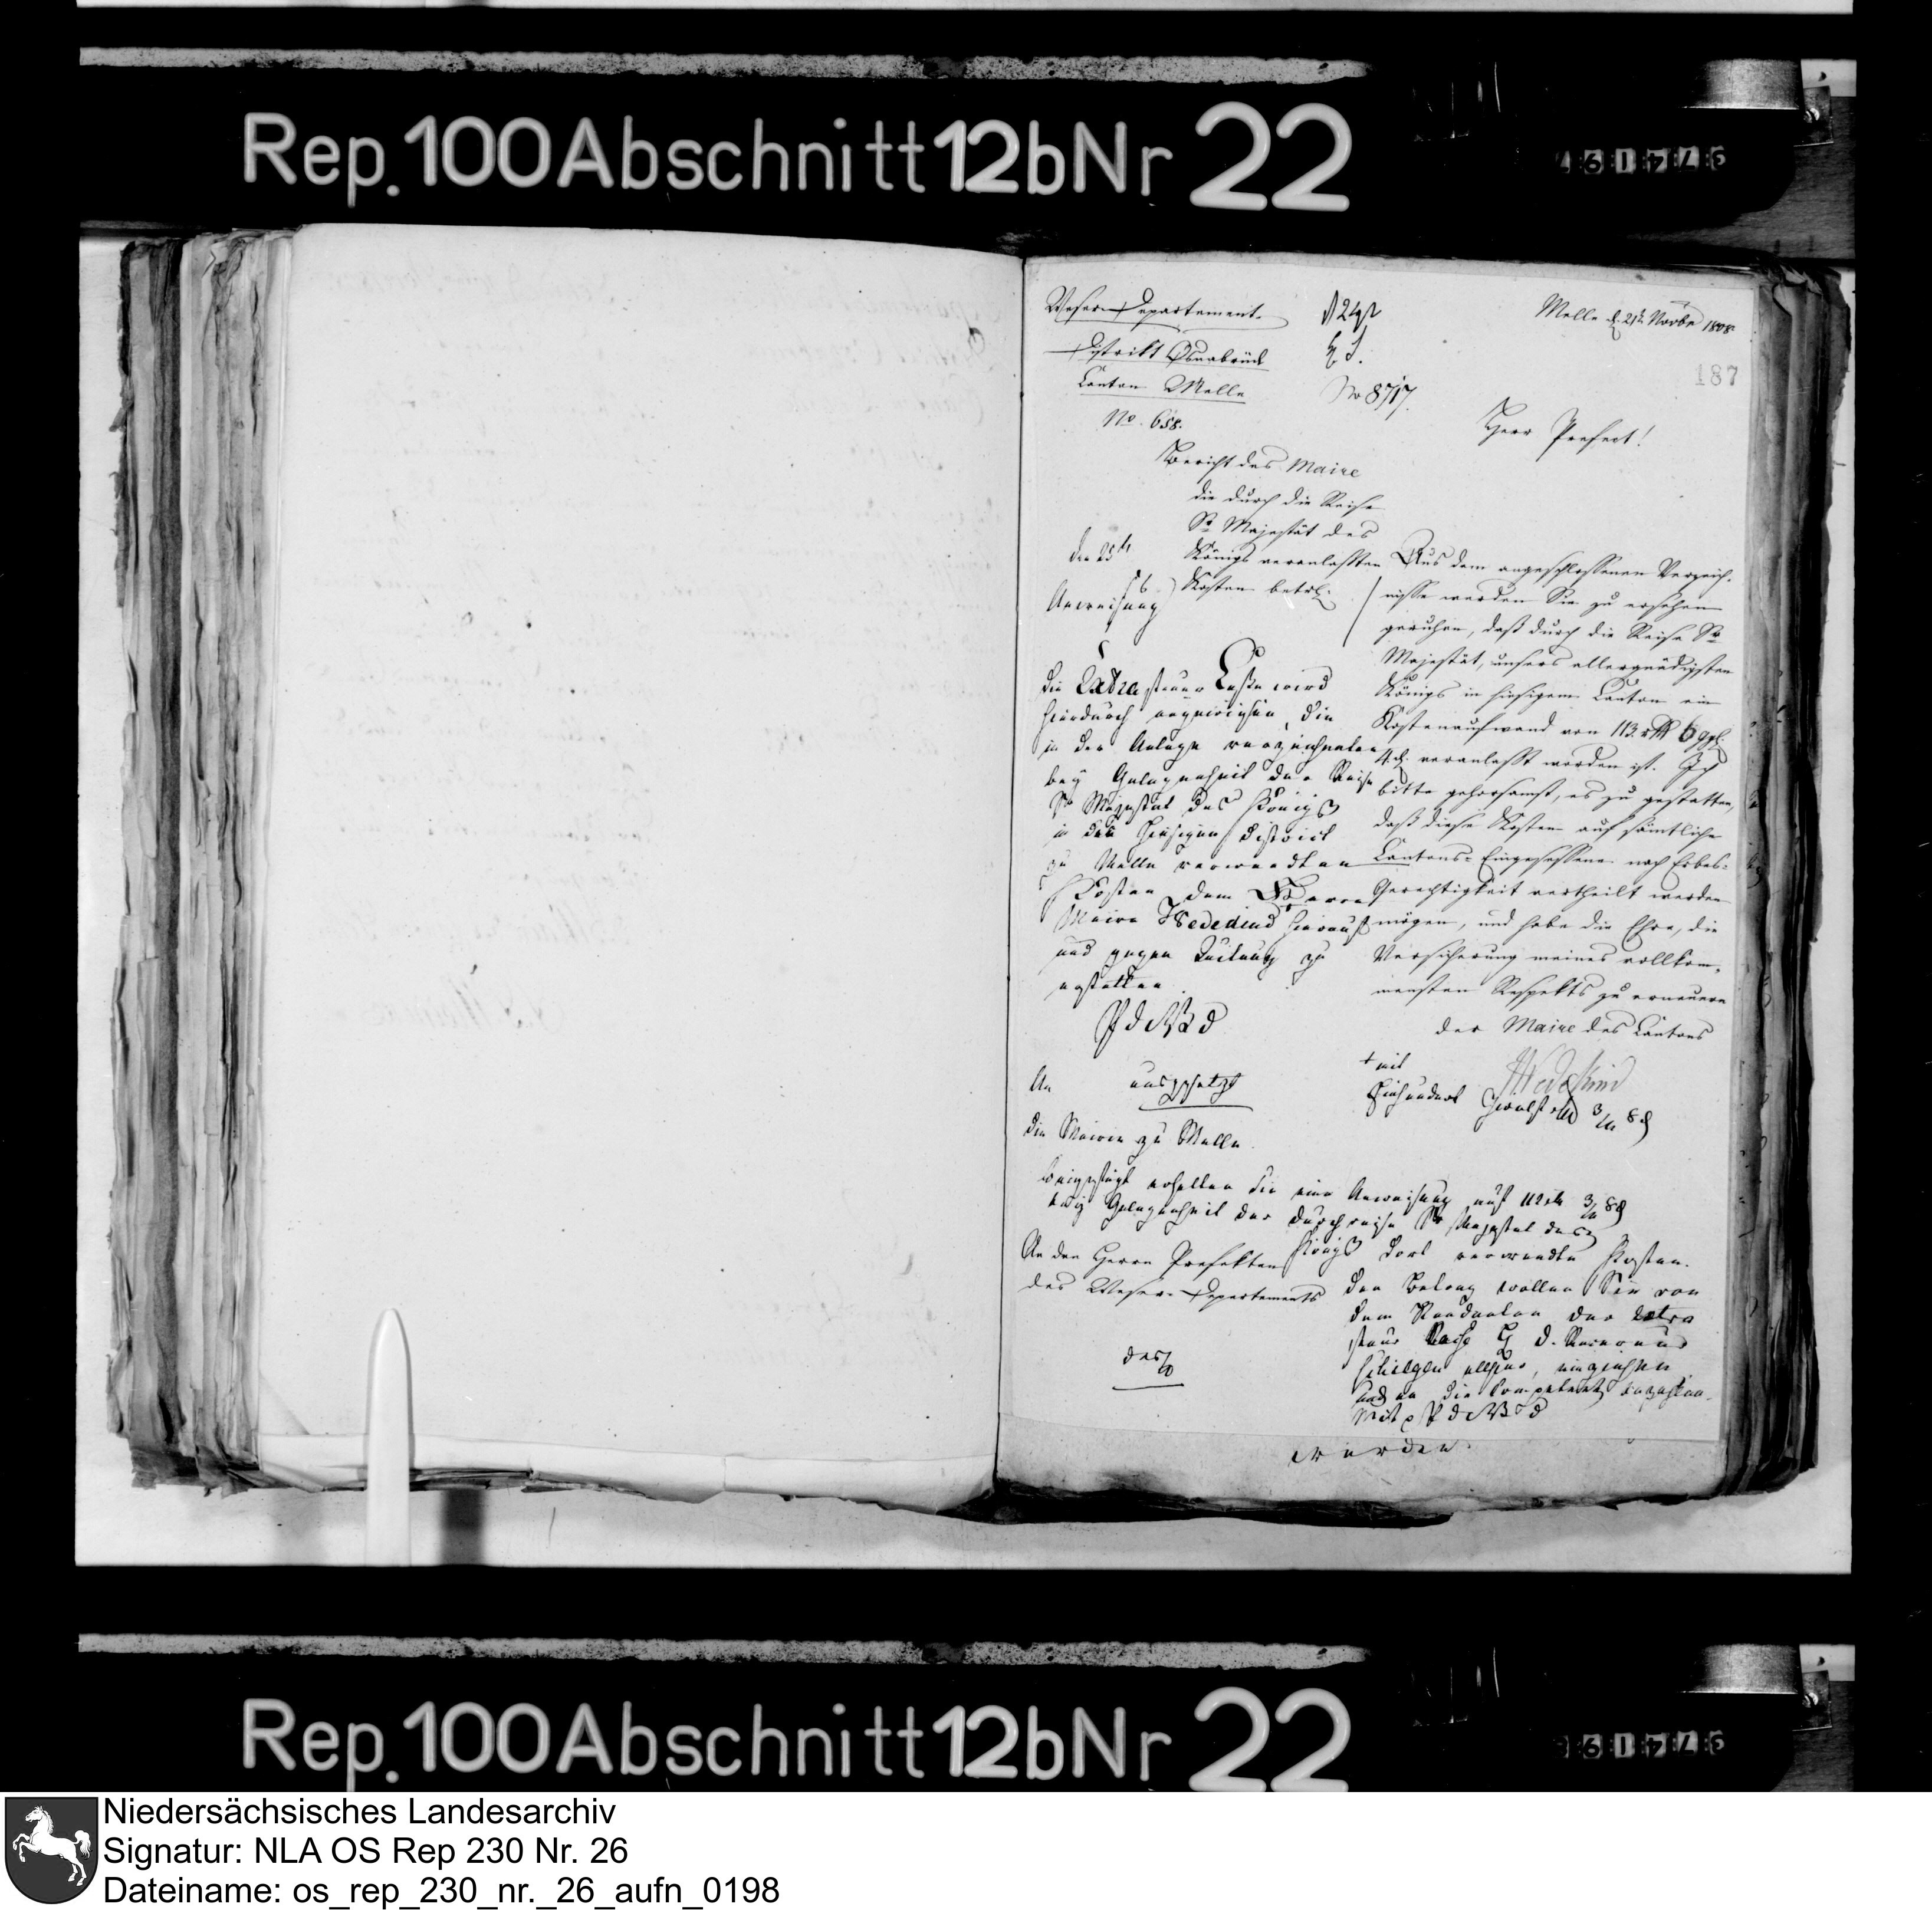 Rep. 100 Abschnitt 12b Nr 22
Weser-Departement.
Distrikt Osnabrück
Canton Melle
No. 658.
No 8717.
Melle d. 21t. Novbr 1808
187
Herr Prefect!
Bericht des Maire
die durch die Reise
Sr. Majestät des
Königs veranlaßten
Kosten betrl.
Aus dem angeschlossenen Verzeich-
nisse werden Sie zu ersehen
geruhen, daß durch die Reise Sr
Majestät, unsers allergnädigsten
Königs in hiesigem Canton ein
Kostenaufwand von 113 rth 6 ggl.
4 d. veranlaßt worden ist. Ich
bitte gehorsamst, es zu gestatten,
daß diese Kosten auf sämtliche
Cantons-Eingesessene nach Erbes-
Gerechtigkeit vertheilt werden
mögen, und habe die Ehre, die
Versicherung meines vollkom-
mensten Respekts zu erneuern
der Maire des Cantons
Wedekind
den 25t
Anweisung
die Extrasteuer Casse wird
hierdurch angewiesen, die
in der Anlage verzeichneten
bey Gelegenheit der Reise
Sr Majestät des Königs
in den hiesigen District
zu Melle verwendeten
Kosten dem Herrn
Maire Wedekind hieraus
und gegen Quitung zu
erstatten
P d W D
An
die Mairie zu Melle.
+ mit
Einhundert zwölf rth 3/m 8 d
beigefügt erhalten Sie eine Anweisung auf 112 rth 3/m 8 d
bey Gelegenheit der Durchreise Sr Majestät des
Königs dort verwendte Kosten.
den Betrag wollen Sie von
dem Rendanten der Extra
steuer Casse H. d.
allhier, einziehen
P d W D
An den Herrn Prefekten
des Weser-Departements
werden.
Rep. 100 Abschnitt 12b Nr 22
Niedersächsisches Landesarchiv
Signatur: NLA OS Rep 230 Nr. 26
Dateiname: os_rep_230_nr._26_aufn_0198